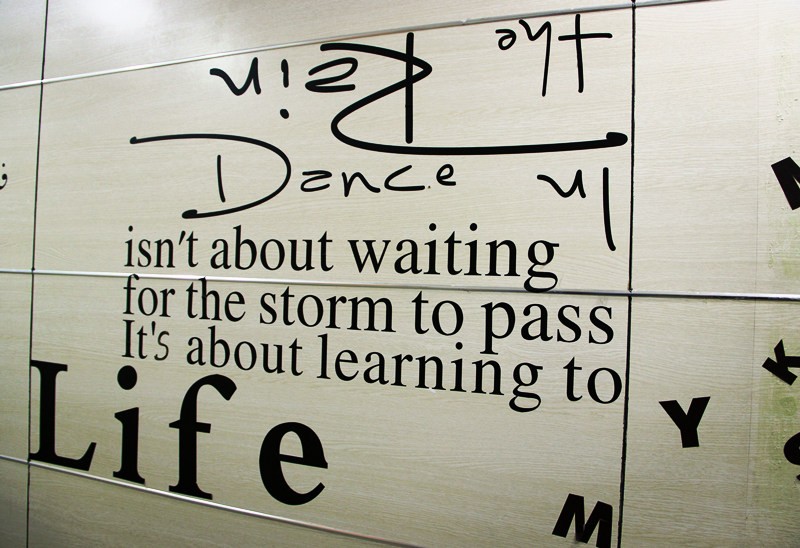 the Rain
Dance In
isn't about waiting
for the storm to pass
It's about learning to
Life
K
Y
M